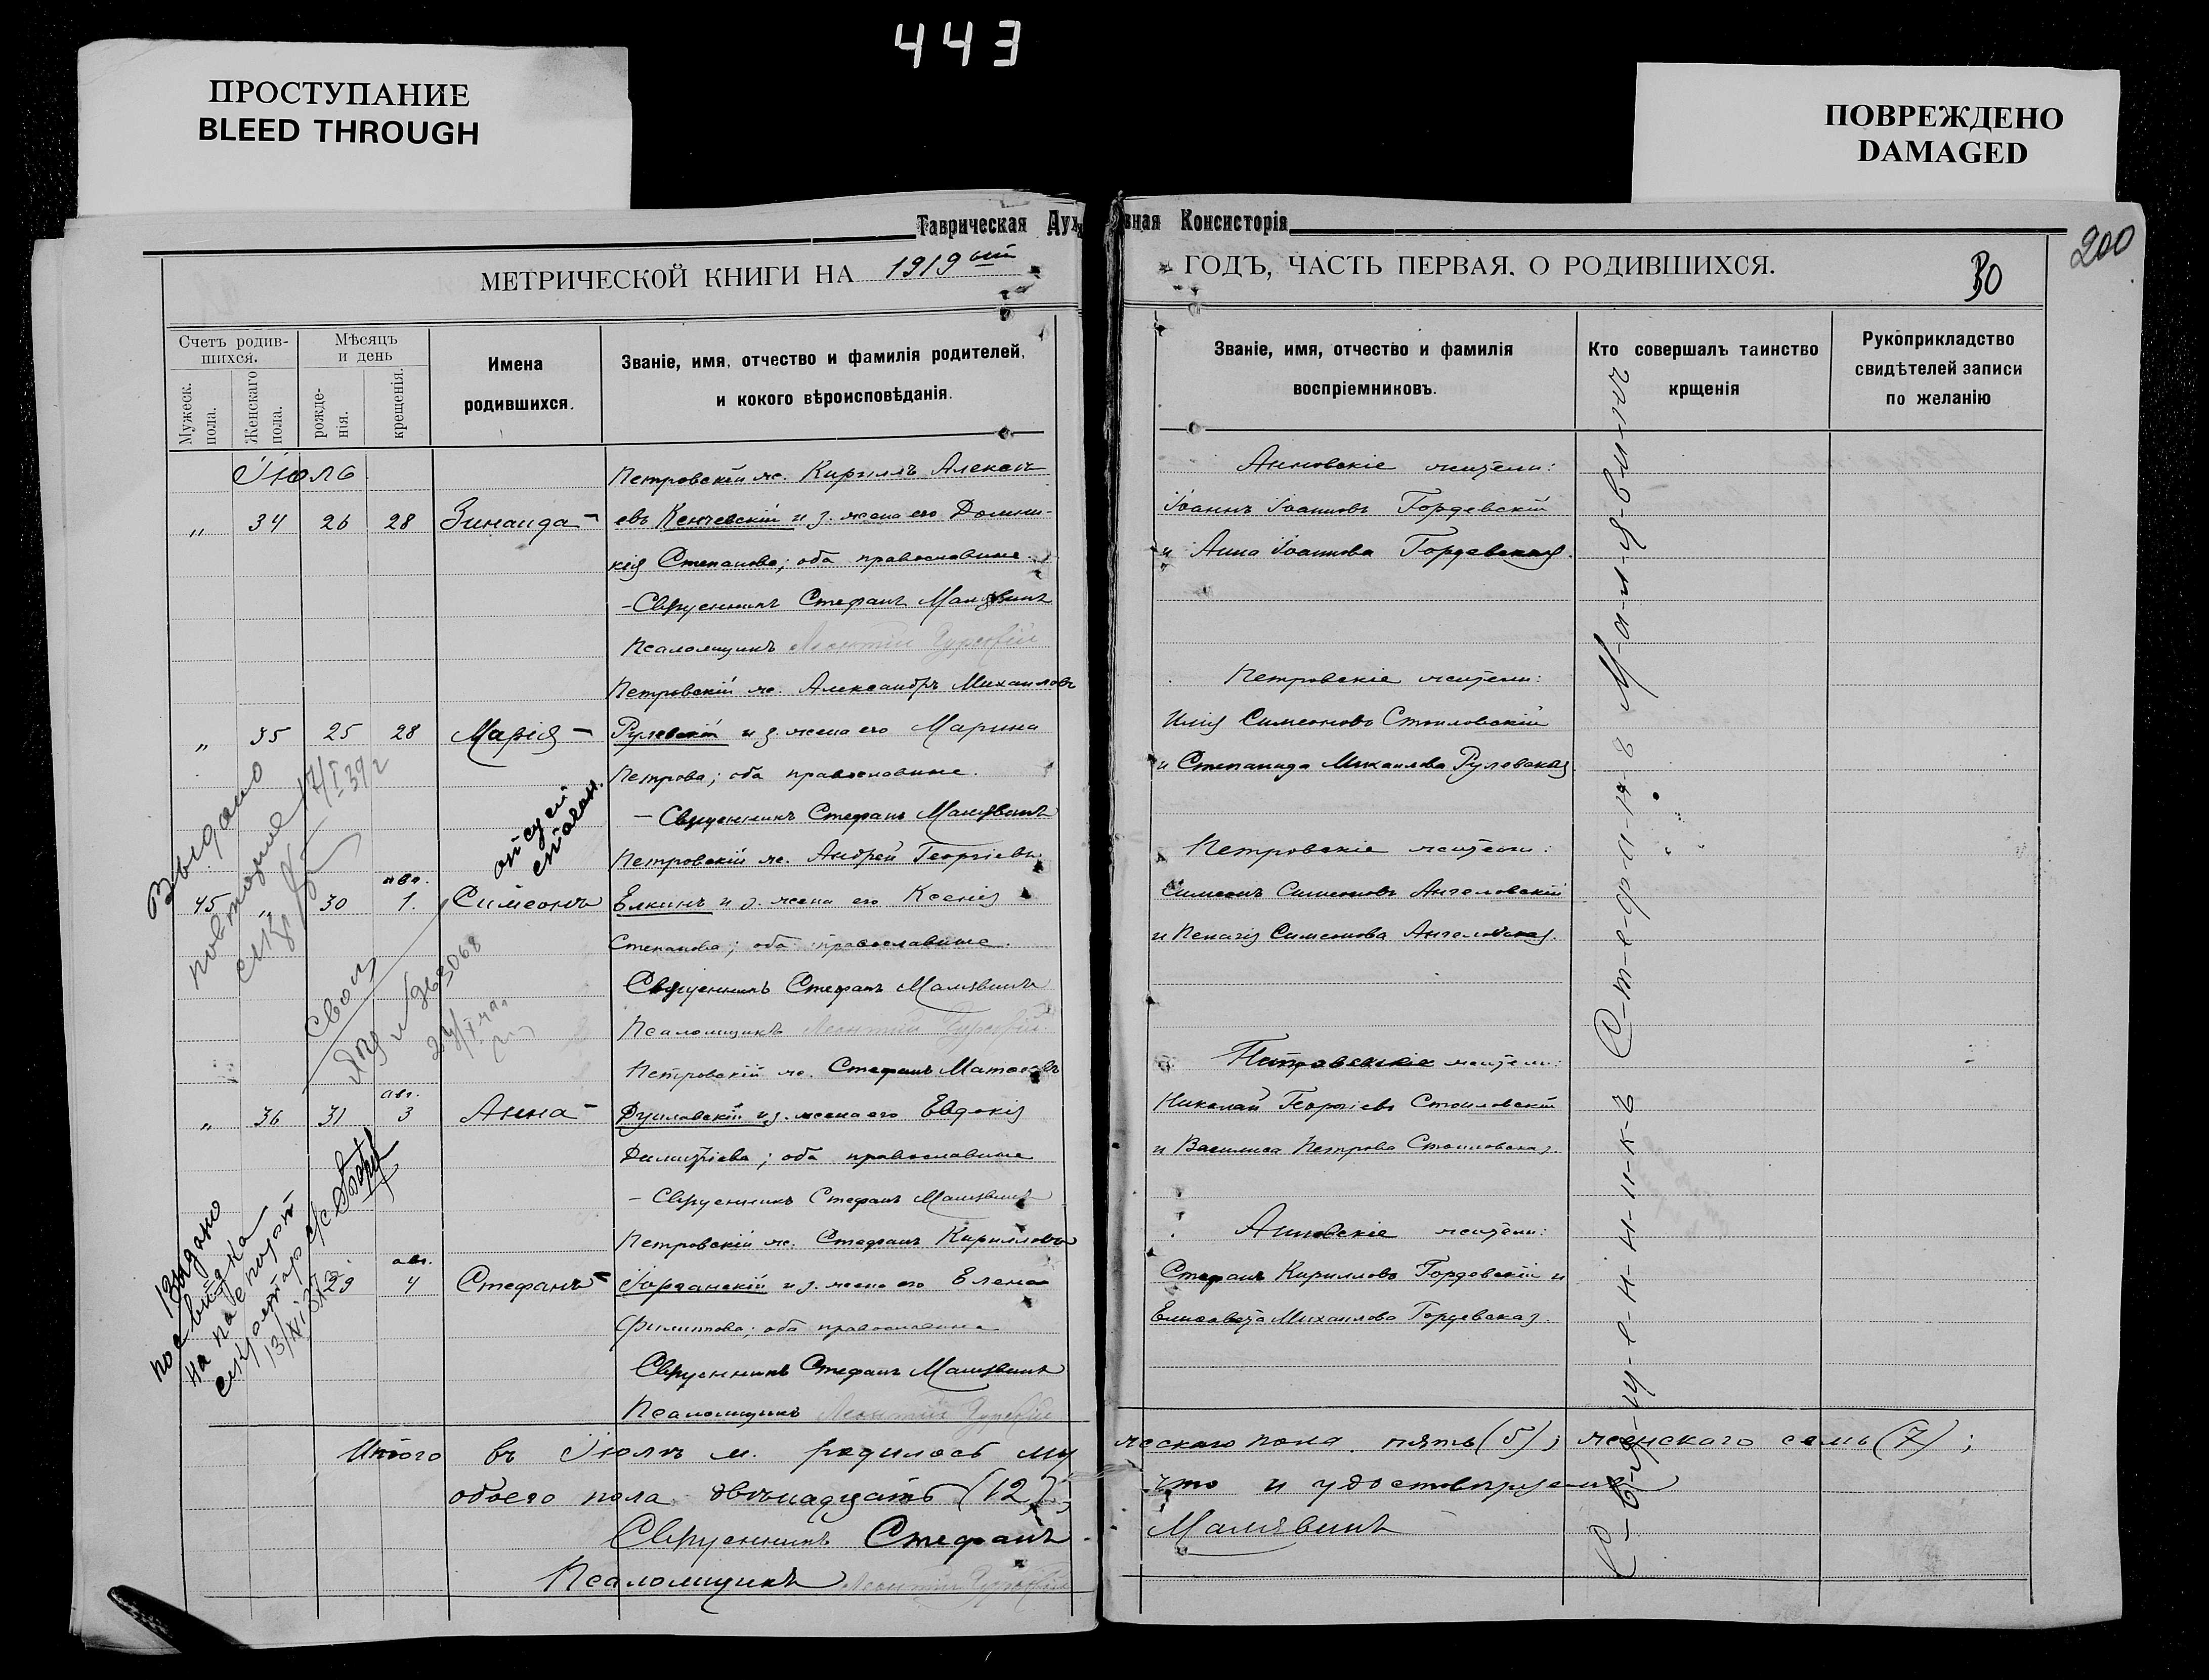 443
ПРОСТУПАНИЕ
BLEED THROUGH
ПОВРЕЖДЕНО
DAMAGED
Таврическая Духовная Консисторія
200
МЕТРИЧЕСКОЙ КНИГИ НА 1919 ый ГОДЪ, ЧАСТЬ ПЕРВАЯ, О РОДИВШИХСЯ.
30
Счетъ родив-
шихся.
Мужеск. пола.
Женскаго пола.
Мѣсяцъ
и день
рожде-
нія.
крещенія.
Имена
родившихся.
Званіе, имя, отчество и фамилія родителей,
и кокого вѣроисповѣданія.
Званіе, имя, отчество и фамилія
воспріемниковъ.
Кто совершалъ таинство
крщенія
Рукоприкладство
свидѣтелей записи
по желанію
Іюль
Петровскій ж. Кириллъ Алексѣ
„ 34 26 28 Зинаида –
евъ Кенчевскій и з. жена его Домни-
кія Степанова; оба православные.
– Священникъ Стефанъ Малявинъ
Псаломщикъ Леонтій
Анновскіе жители:
Іоаннъ Іоанновъ Гордевскій
и Анна Іоаннова Гордевская.
Петровскій ж. Александръ Михаиловъ
„ 35 25 28 Марія –
Рулевскій и з. жена его Марина
Петрова; оба православные.
– Священникъ Стефанъ Малявинъ
Петровскіе жители:
Илія Симеоновъ Стоиловскій
и Степанида Михаилова Рулевская.
Петровскій ж. Андрей Георгіевъ
45 „ 30 авг. 1. Симеонъ
Елкинъ и з. жена его Ксенія
Степанова; оба православные.
Священникъ Стефанъ Малявинъ
Псаломщикъ Леонтій
Петровскіе жители:
Симеонъ Симеоновъ Ангеловскій
и Пелагія Симеонова Ангеловская.
Петровскій ж. Стефанъ
„ 36 31 авг. 3 Анна –
и з. жена его Евдокія
Димитріева; оба православные
– Священникъ Стефанъ Малявинъ
Петровскіе жители:
Николай Георгіевъ Стоиловскій
и Василиса Петрова Стоиловская.
Петровскій ж. Стефанъ Кирилловъ
29 авг. 4 Стефанъ –
Іорданскій и з. жена его Елена
Филиппова; оба православные
Священникъ Стефанъ Малявинъ
Псаломщикъ Леонтій
Анновскіе жители:
Стефанъ Кирилловъ Гордевскій и
Елисавета Михаилова Гордевская.
С-в-я-щ-е-н-н-и-к-ъ С-т-е-ф-а-н-ъ М-а-л-я-в-и-н-ъ
Выдано
повторное 17/I 39 г
Выдано
на паспорт
Итого въ Іюлѣ м. родилось мужескаго пола пять (5); женскаго семь (7);
обоего пола двѣнадцать (12), что и удостовѣряемъ
Священникъ Стефанъ Малявинъ
Псаломщикъ Леонтій